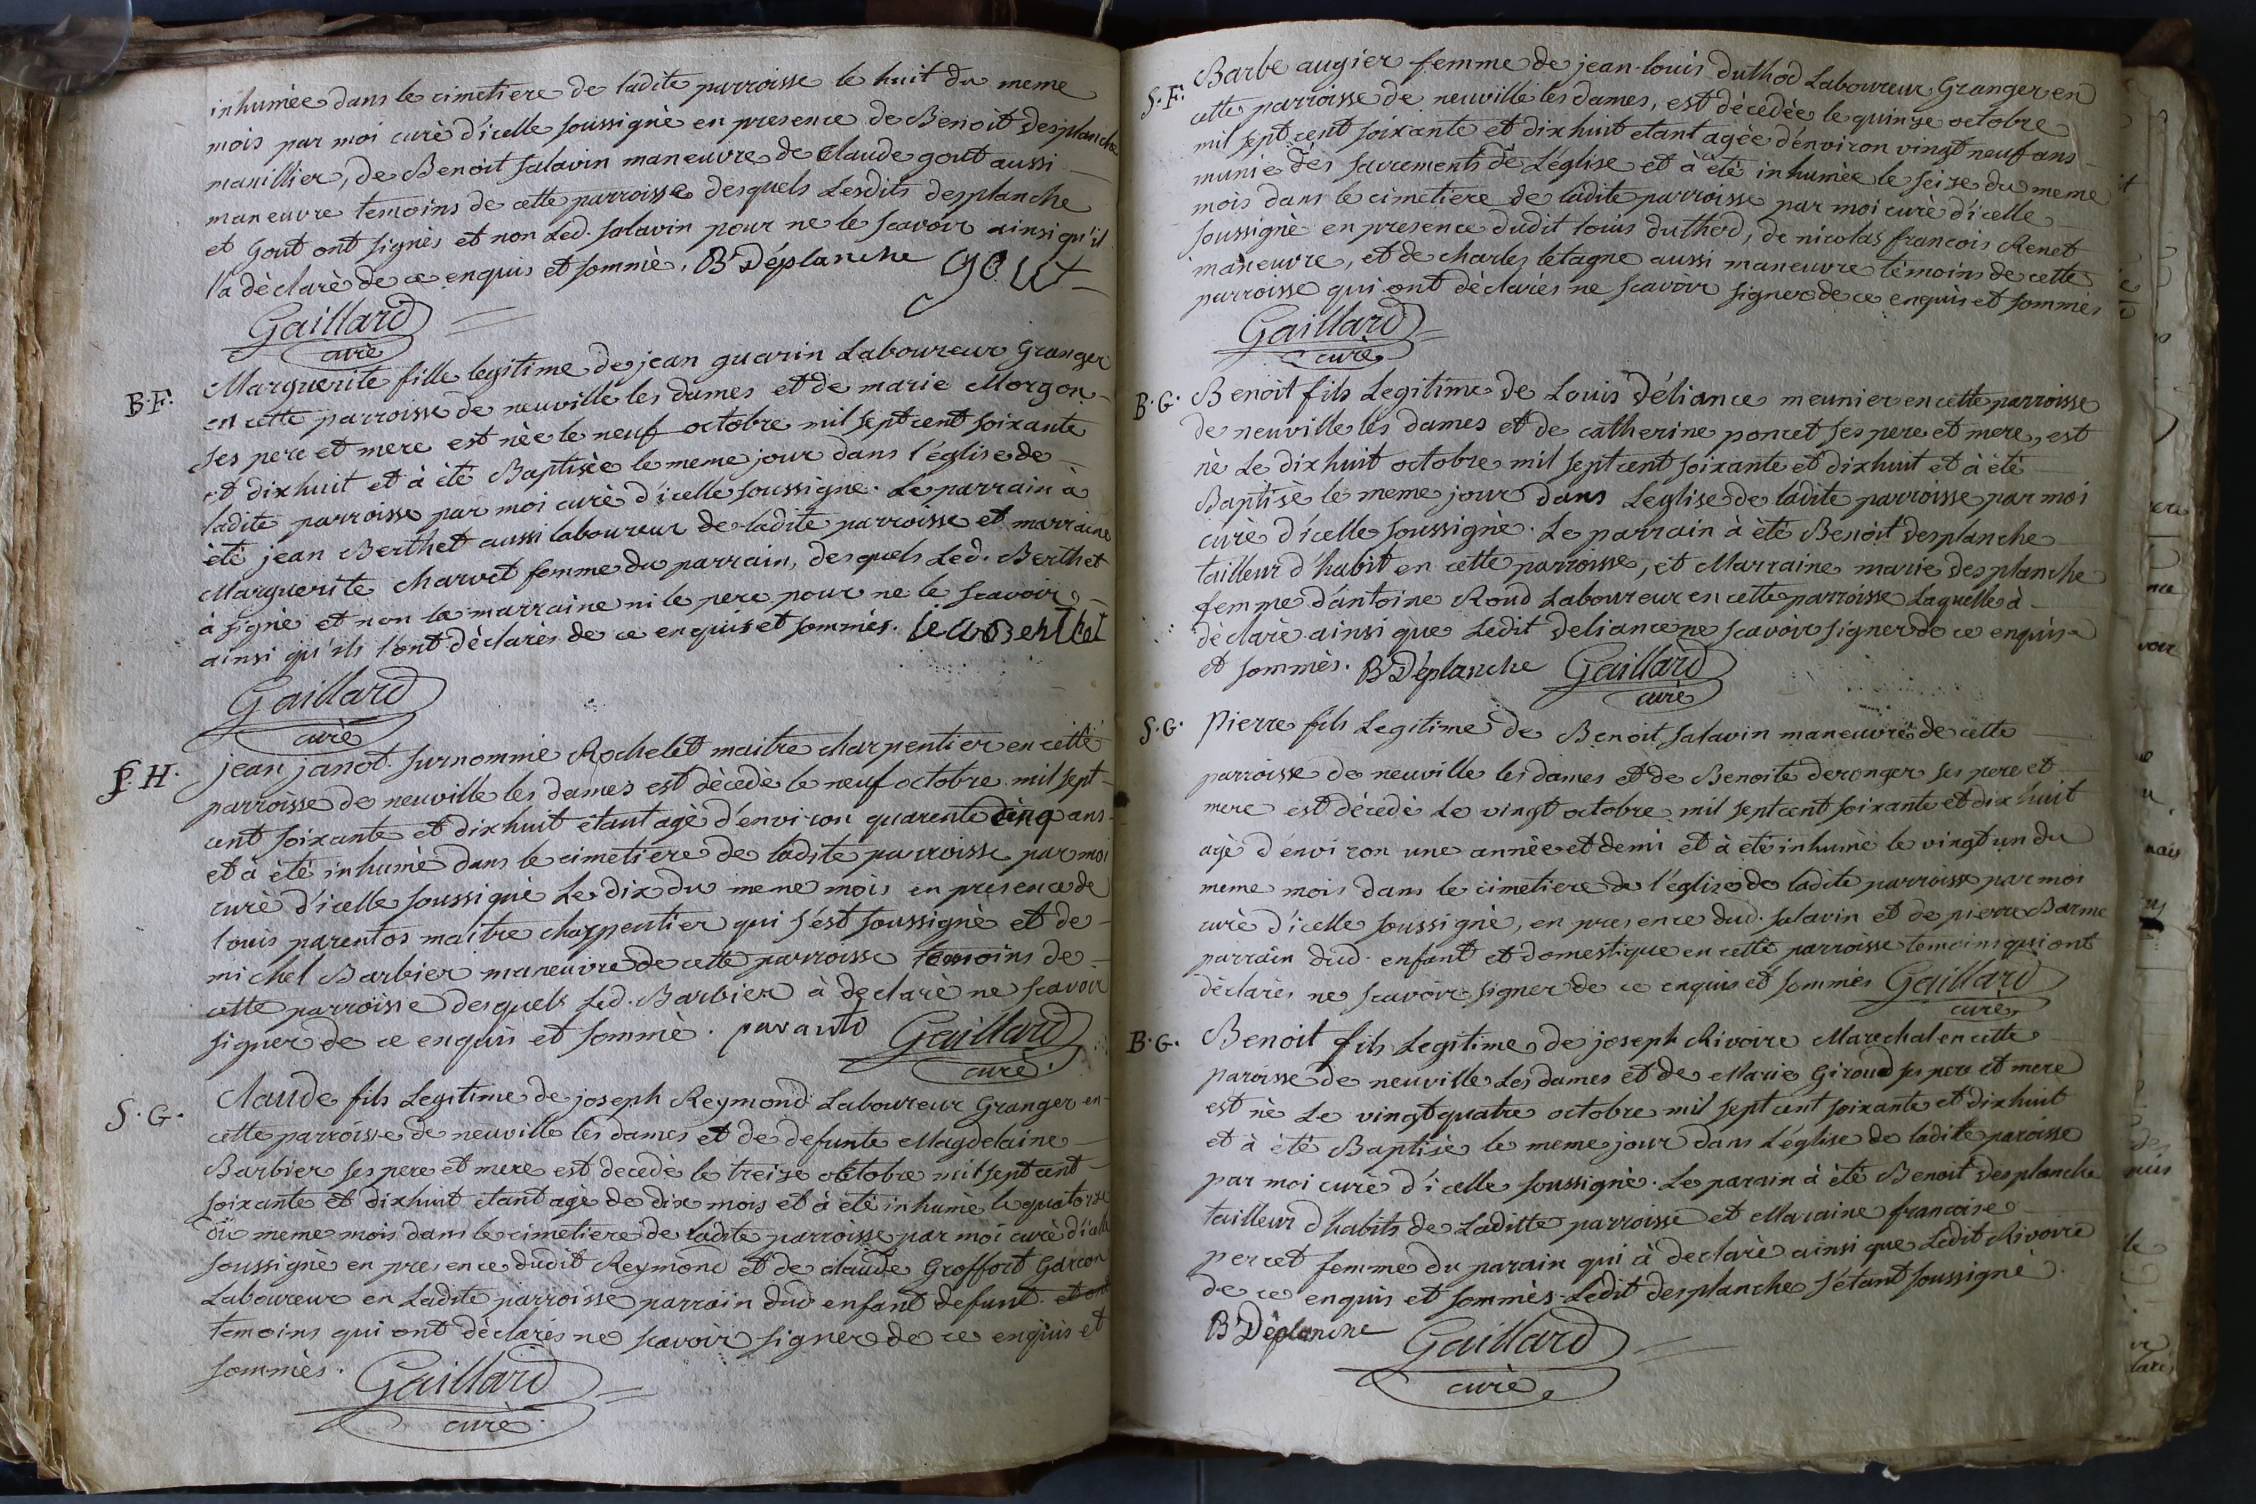 inhumèe dans le cimetiere de ladite parroisse le huit du meme
mois par moi curè d'icelle soussignè en presence de Benoit Desplanche
manillier, de Benoit Salavin maneuvre de Claude gout aussi
maneuvre temoins de cette parroisse desquels Lesdits desplanche
et Gout ont signès et non Led. Salavin pour ne le scavoir ainsi qu'il
l'a dèclarè de ce enquis et sommè. B Déplanche gout
Gaillard
curè
B. F. Marguerite fille legitime de jean guarin Laboureur Granger
en cette parroisse de neuville les dames et de marie Morgon
ses pere et mere est nèe le neuf octobre mil sept cent soixante
et dixhuit et à ètè Baptisèe le meme jour dans l'église de
ladite parroisse par moi curè d'icelle soussigne. Le parrain à
ètè jean Berthet aussi laboureur de ladite parroisse et marraine
Marguerite charvet femme du parrain, desquels Led. Berthet
à signè et non la marraine ni le pere pour ne le scavoir
ainsi qu'ils l'ont dèclarès de ce enquis et sommès. Berthet
Gaillard
curè
S. H. jean janot surnommè Rochelet maitre charpentier en cette
parroisse de neuville les dames est dècede le neuf octobre mil sept
cent soixante et dixhuit ètant agè d'environ quarente cinq ans
et à ètè inhumè dans le cimetiere de ladite parroisse par moi
curè d'icelle soussignè Le dix du meme mois en presence de
louis parentos maitre charpentier qui s'est soussignè et de
michel Barbier maneuvre de cette parroisse temoins de
cette parroisse desquels Led. Barbier à declarè ne scavoir
signer de ce enquis et sommè. paranto Gaillard
curè
S. G. Claude fils Legitime de joseph Reymond Laboureur Granger en
cette parroisse de neuville les dames et de defunte Magdelaine
Barbier ses pere et mere est decedè le treize octobre mil sept cent
soixante et dixhuit etant agè de dix mois et à ètè inhumè le quatorze
du meme mois dans le cimetiere de ladite parroisse par moi curè d'icelle
soussignè en presence dudit Reymond et de claude Groffort Garcon
Laboureur en Ladite parroisse parrain dud enfant defunt et ont
temoins qui ont dèclarès ne scavoir signer de ce enquis et
sommès. Gaillard
curè
S. F. Barbe augier femme de jean-louis duthod Laboureur Granger en
cette parroisse de neuville les dames, est dècedèe le quinze octobre
mil sept cent soixante et dixhuit etant agèe d'environ vingt neuf ans
munie des sacrements de L'eglise et à ètè inhumèe le seize du meme
mois dans le cimetiere de ladite parroisse par moi curè d'icelle
soussignè en presence dudit louis duthod, de nicolas francois Renet
maneuvre, et de charles letagne aussi maneuvre tèmoins de cette
parroisse qui ont dèclarès ne scavoir signer de ce enquis et sommès
Gaillard
curè
B. G. Benoit fils Legitime de Louis Déliance meunier en cette parroisse
de neuville les dames et de catherine poncet ses pere et mere, est
nè Le dixhuit octobre mil sept cent soixante et dixhuit et à ètè
Baptisè le meme jour dans L'eglise de ladite parroisse par moi
curè d'icelle soussignè. Le parrain à ètè Benoit Desplanche
tailleur d'habit en cette parroisse, et Marraine marie Desplanche
femme d'antoine Roud Laboureur en cette parroisse Laquelle à
dèclarè ainsi que Ledit deliance ne scavoir signer de ce enquis
et sommès. B Déplanche Gaillard
curè
S. G. Pierre fils Legitime de Benoit Salavin maneuvre de cette
parroisse de neuville les dames et de Benoite deronger ses pere et
mere est dècedè Le vingt octobre mil sept cent soixante et dixhuit
agè d'environ une annèe et demi et à etè inhumè le vingt un du
meme mois dans le cimetiere de l'église de ladite parroisse par moi
curè d'icelle soussignè, en presence dud. Salavin et de pierre Barme
parrain dud. enfant et domestique en cette parroisse temoins qui ont
dèclarès ne scavoir signer de ce enquis et sommès Gaillard
curè
B. G. Benoit fils Legitime de joseph Rivoire Marechal en cette
paroisse de neuville Les dames et de Marie Giroud ses pere et mere
est nè Le vingt quatre octobre mil sept cent soixante et dixhuit
et à ètè Baptisè le meme jour dans L'église de ladite paroisse
par moi curè d'icelle soussignè. Le parain à ètè Benoit Desplanche
tailleur d'habits de Laditte parroisse et Maraine francoise
perret femme du parain qui à declarè ainsi que Ledit Rivoire
de ce enquis et sommès Ledit desplanche s'étant soussignè
B Déplanche Gaillard
curè